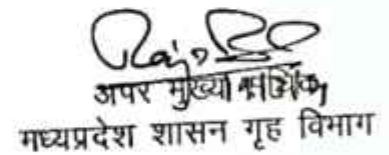 अपर मुख्य सचिव
मध्यप्रदेश शासन गृह विभाग